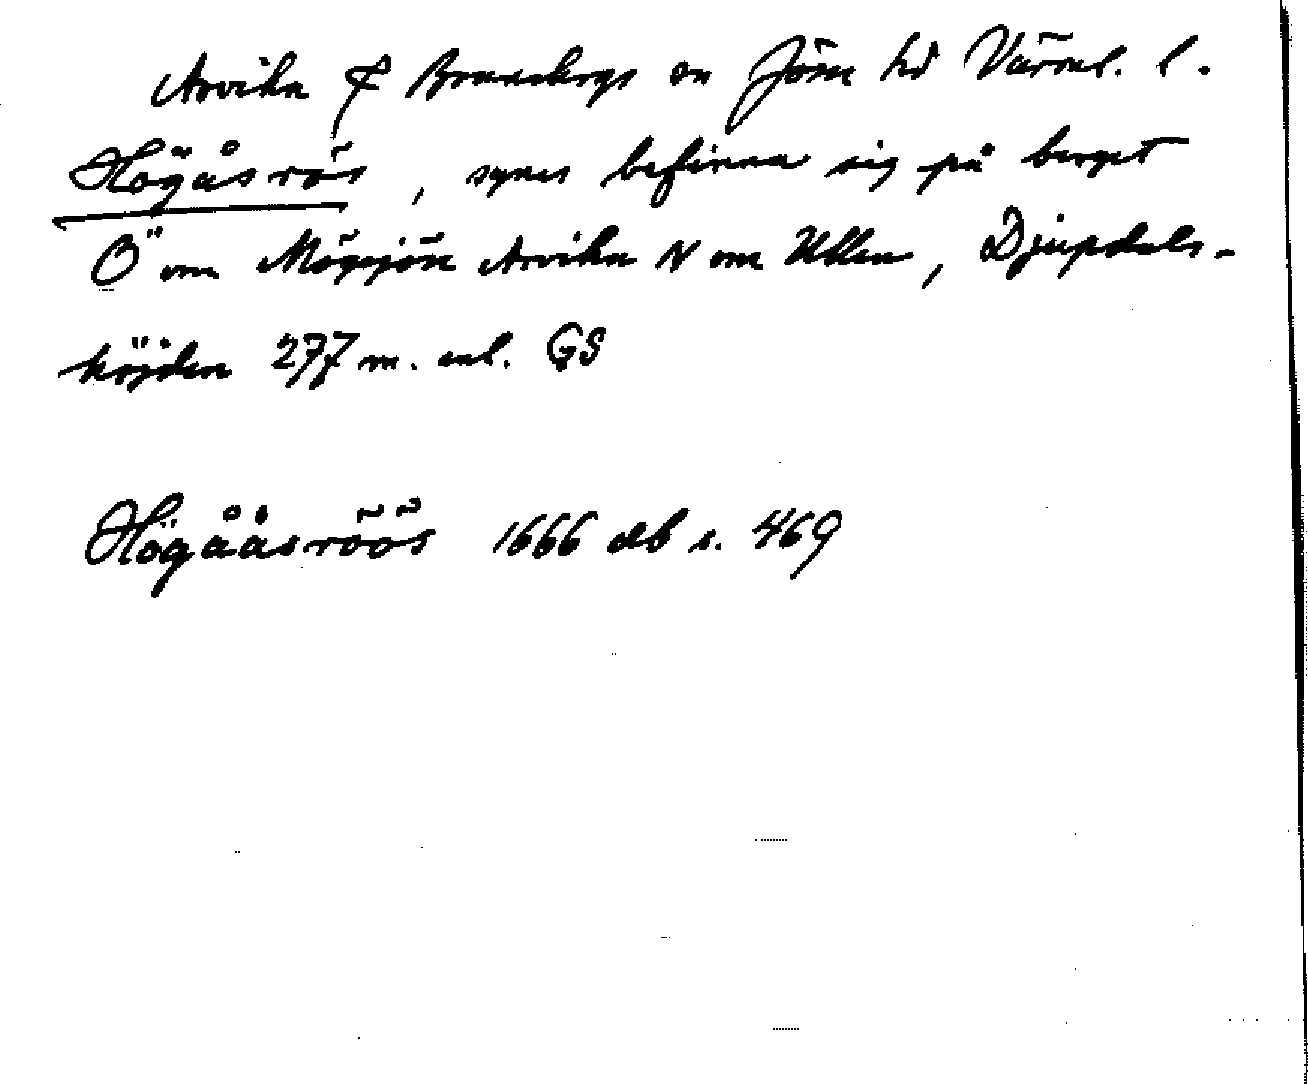 Arvika & Brunskogs sn Jösse hd Värml. l.
Högåsrös, synes befinna sig på berget
Ö om Mögsjön Arvika N om Ullen, Djupdals-
höjden 277 m. enl. GS
Högååsröös 1666 db s. 469